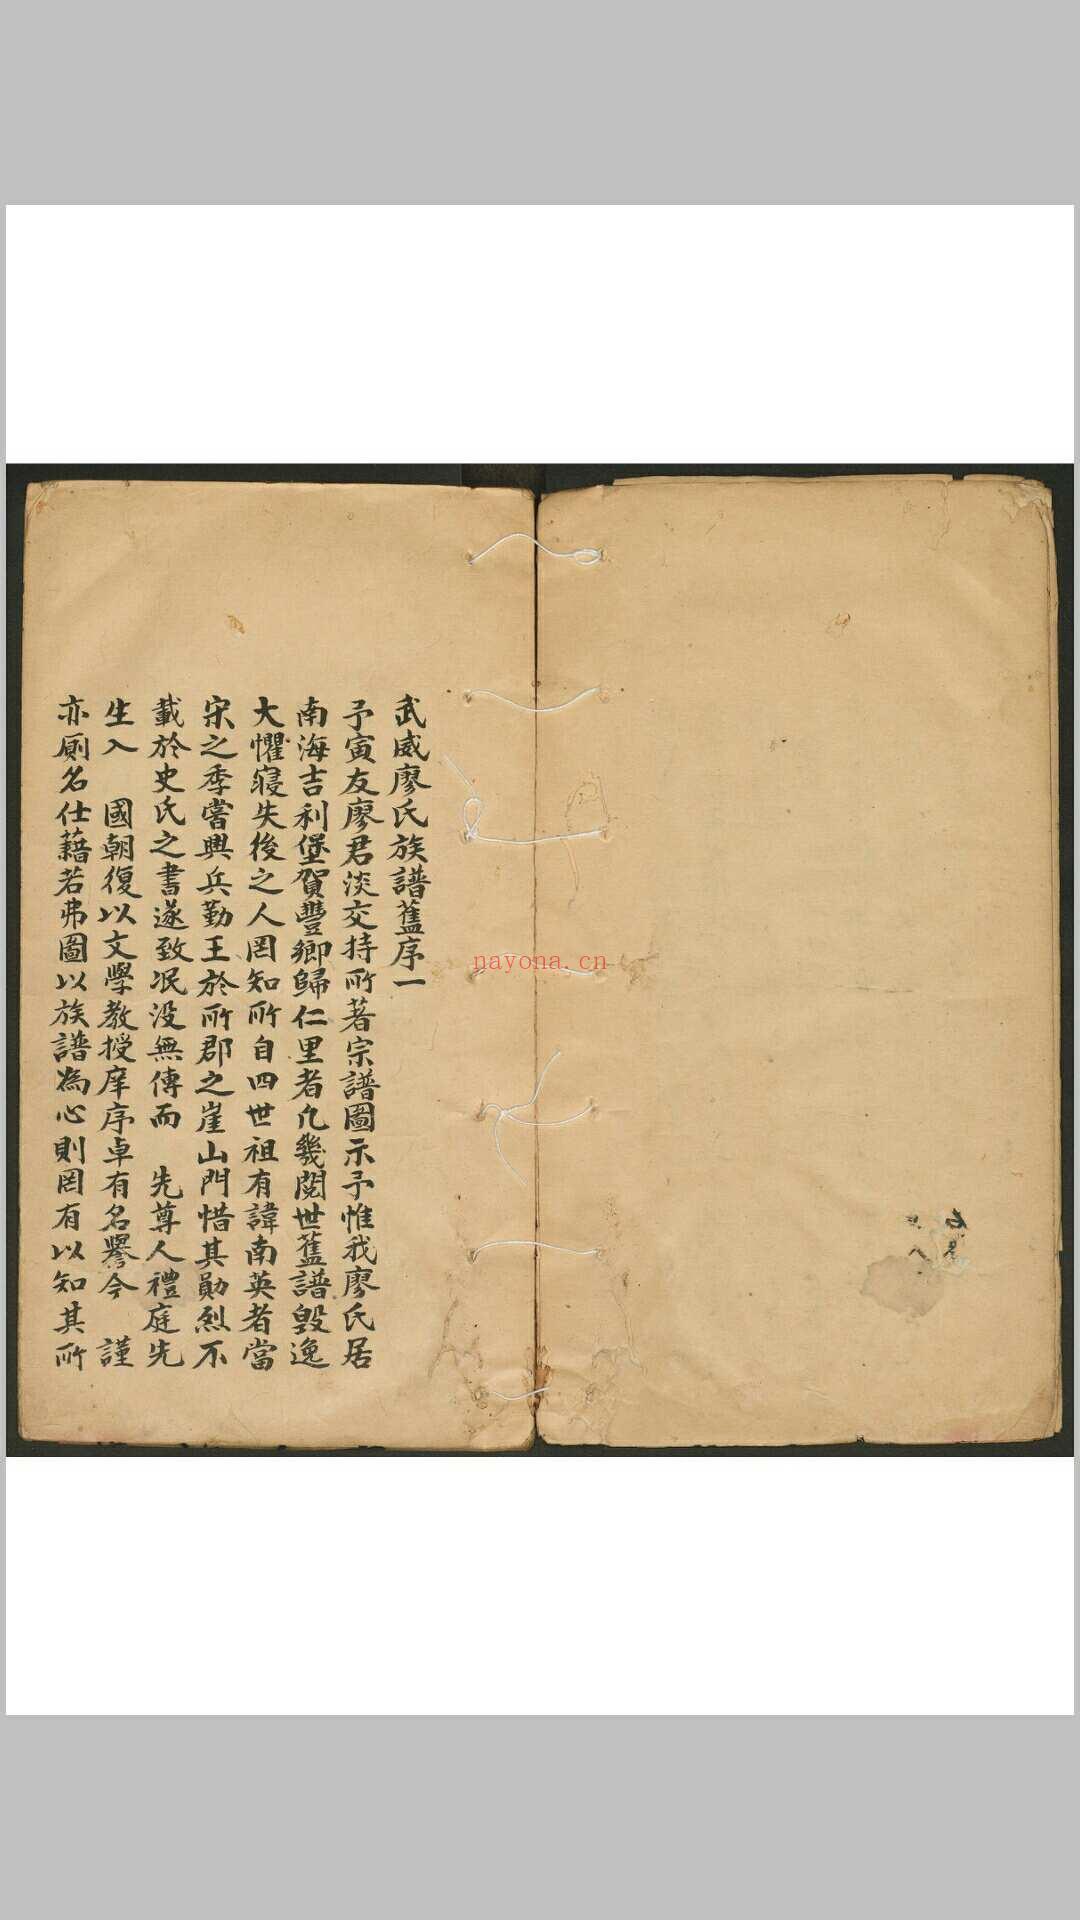 武威廖氏族譜舊序一
予寅友廖君淡交持所著宗譜圖示予惟我廖氏居
南海吉利堡賀豐鄉歸仁里者凡幾閱世舊譜毀逸
大懼寖失後之人罔知所自四世祖有諱南英者當
宋之季嘗興兵勤王於所郡之崖山門惜其勛烈不
載於史氏之書遂致泯没無傳而 先尊人禮庭先
生入 國朝復以文學教授庠序卓有名譽今 謹
亦厠名仕籍若弗圖以族譜為心則罔有以知其所
nayona.cn